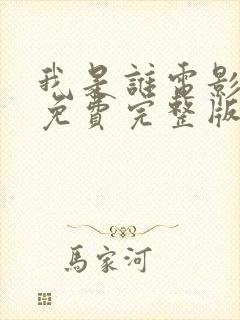 我是誰電影
免費完整版
馬家河